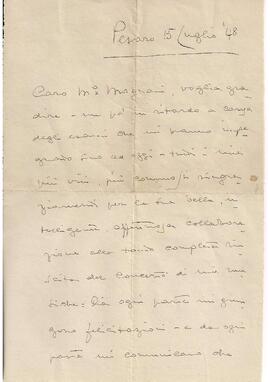 Pesaro 15 Luglio '48
Caro M° voglia gra-
dire - un pò in ritardo a causa
degli esami che mi hanno impe-
gnato fino ad oggi - tutti i miei
più vivi, più commossi ringra-
ziamenti per la sua bella, in-
telligente, affettuosa collabora-
zione alla riu-
scita del Concerto di mie mu-
siche. Da ogni parte mi giun-
gono felicitazioni - e da ogni
parte mi comunicano che